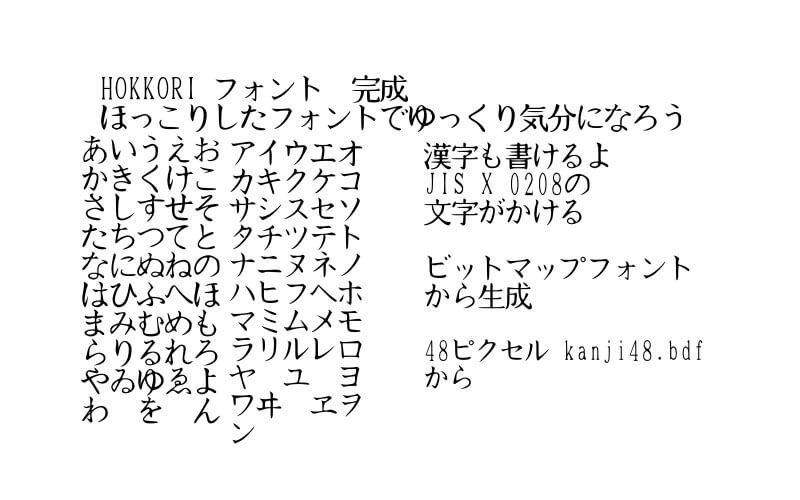 HOKKORI フォント　完成
ほっこりしたフォントでゆっくり気分になろう
あいうえお
かきくけこ
さしすせそ
たちつてと
なにぬねの
はひふへほ
まみむめも
らりるれろ
やゐゆゑよ
わ　を　ん
アイウエオ
カキクケコ
サシスセソ
タチツテト
ナニヌネノ
ハヒフヘホ
マミムメモ
ラリルレロ
ヤ　ユ　ヨ
ワヰ　ヱヲ
ン
漢字も書けるよ
JIS X 0208の
文字がかける
ビットマップフォント
から生成
48ピクセル kanji48.bdf
から